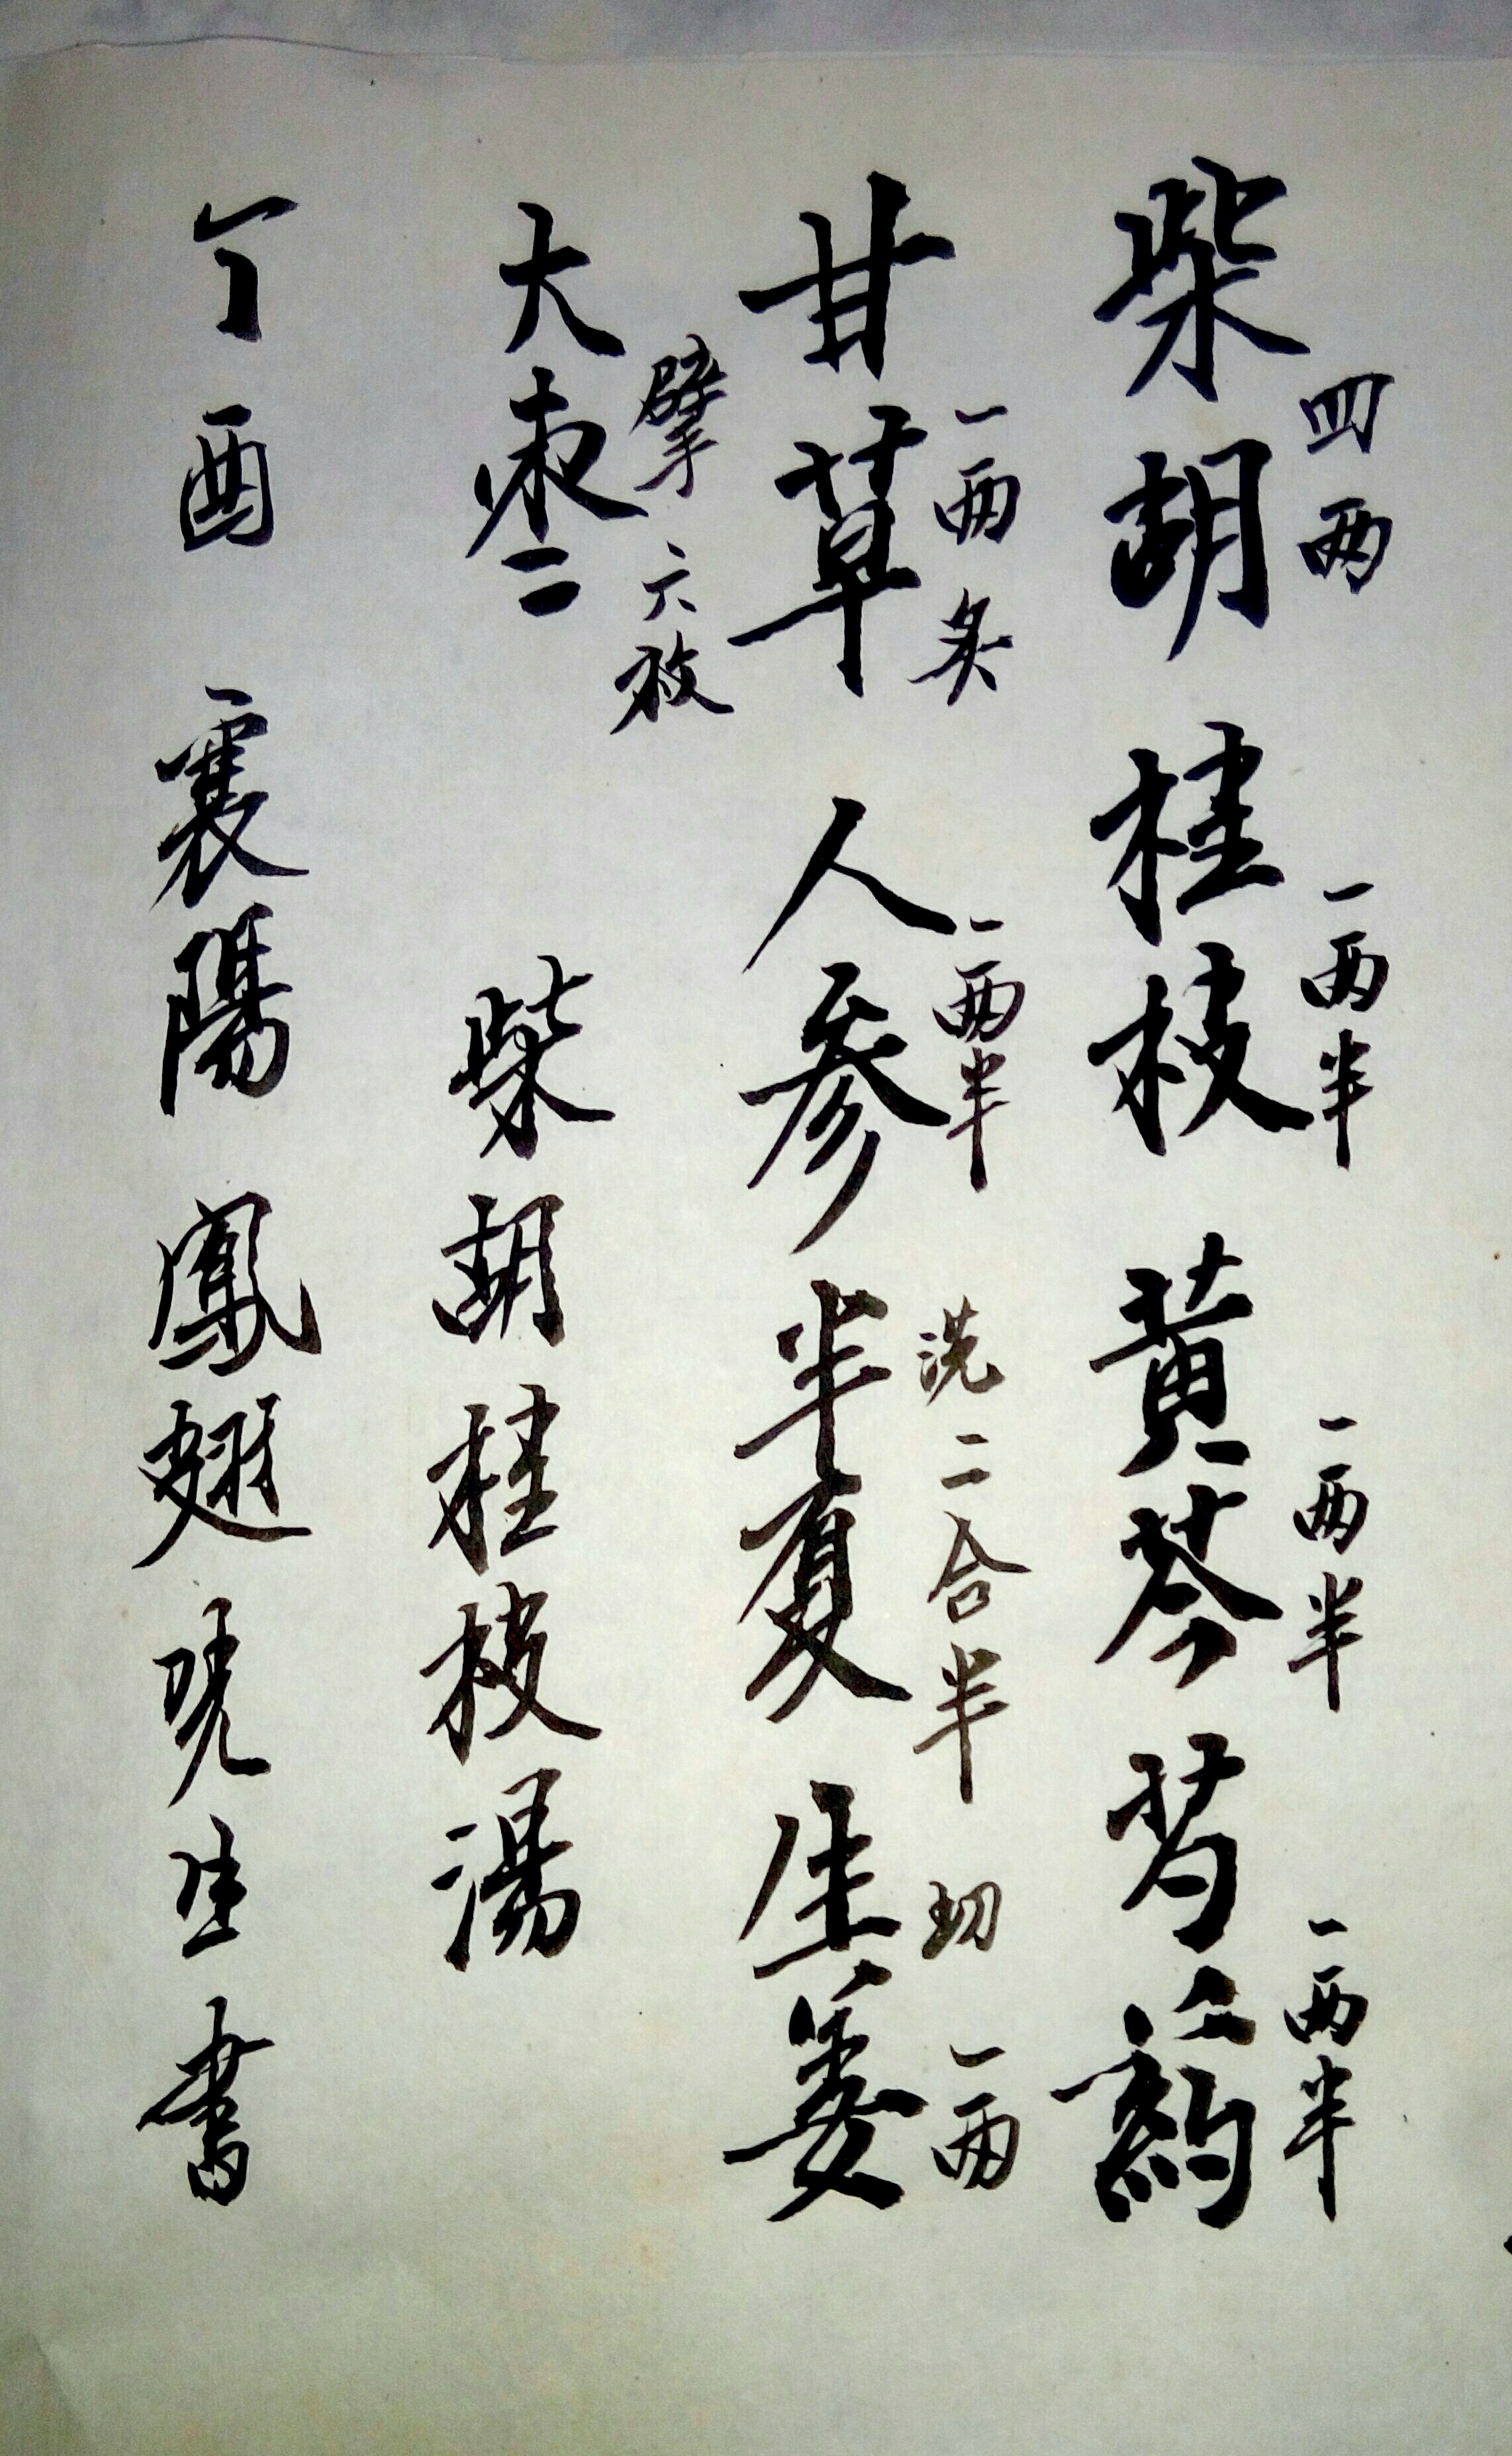 柴胡 四两 桂枝 一两半 黄芩 一两半 芍药 一两半
甘草 一两 炙 人参 一两半 半夏 洗二合半 生姜 切 一两
大枣 擘 六枚 柴胡桂枝湯
丁酉 襄陽 鳳翅 曉生書